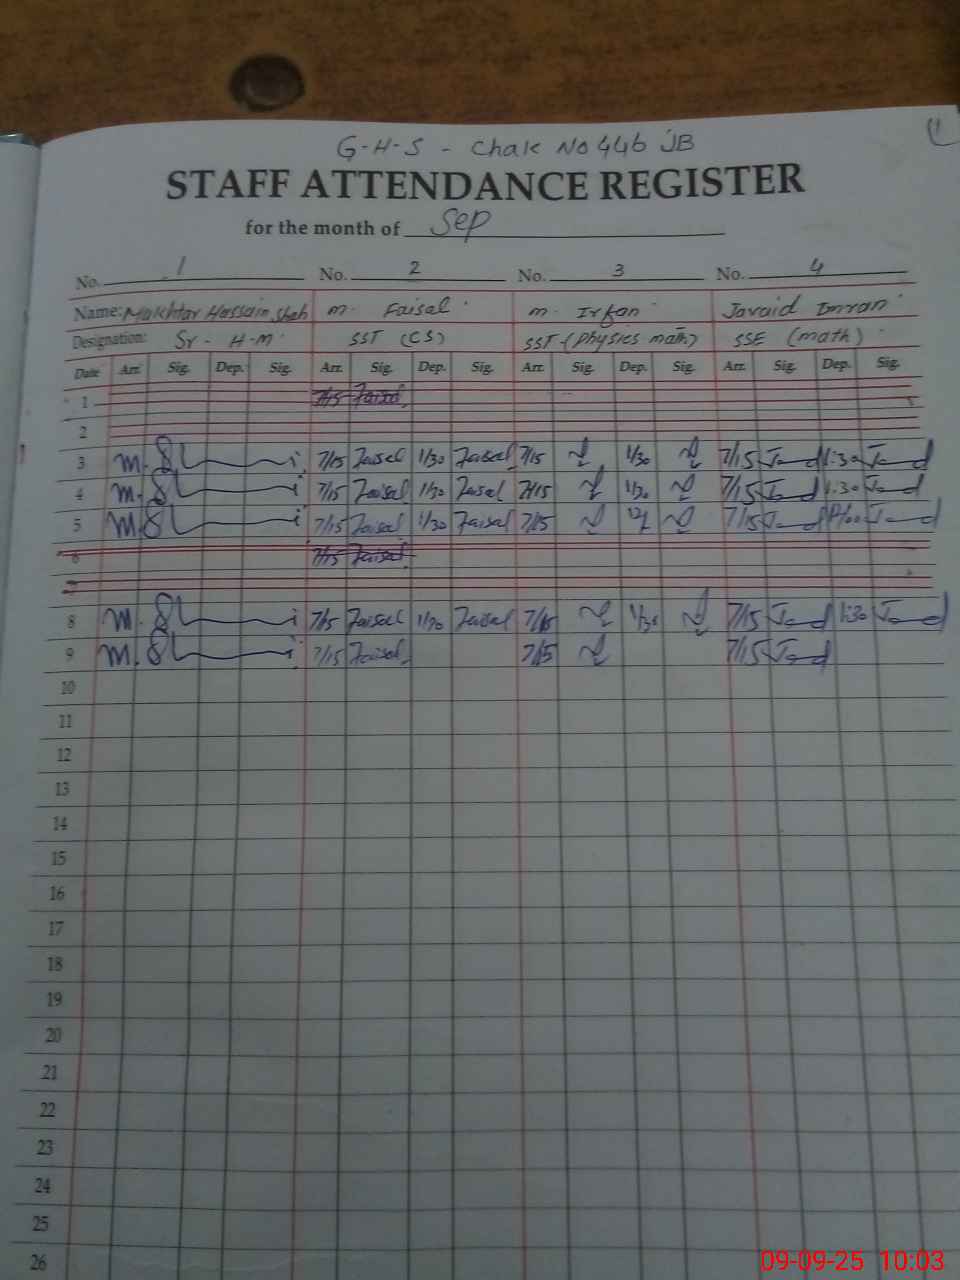 G-H-S - Chak No 446 JB
STAFF ATTENDANCE REGISTER
for the month of Sep
No. 1 No. 2 No. 3 No. 4
Name: Makhtar Hassain Shah m. Faisal m. Irfan Javaid Imran
Designation: Sr - H-M SST (CS) SST-(Physics math) SSE (math)
Date Arr. Sig. Dep. Sig. Arr. Sig. Dep. Sig. Arr. Sig. Dep. Sig. Arr. Sig. Dep. Sig.
1 7/15 Faisal
2
3 7/15 Faisal 1/30 Faisal 7/15 1/30 7/15 1:30
4 7/15 Faisal 1/30 Faisal 7/15 1/30 7/15 1:30
5 7/15 Faisal 1/30 Faisal 7/15 7/15
6 7/15 Faisal
7
8 7/15 Faisal 1/30 Faisal 7/15 1/30 7/15 1:30
9 7/15 Faisal 7/15 7/15
10
11
12
13
14
15
16
17
18
19
20
21
22
23
24
25
26
09-09-25 10:03